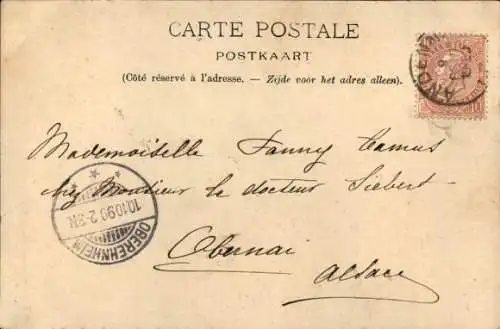 CARTE POSTALE
POSTKAART
(Côté réservé à l'adresse. — Zijde voor het adres alleen).
Mademoiselle Fanny Camus
chez Monsieur le docteur Siebert
Obernai
Alsace
OBEREHNHEIM
10.10.99. 2-3N.
10